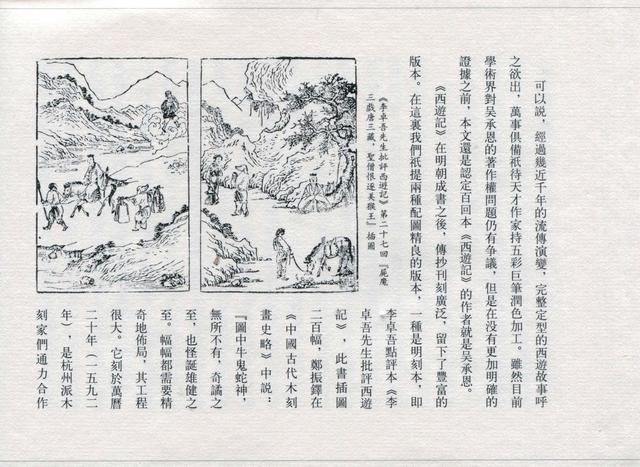 可以説，經過幾近千年的流傳演變，完整定型的西遊故事呼
之欲出，萬事俱備祇待天才作家持五彩巨筆潤色加工。雖然目前
學術界對吴承恩的著作權問題仍有争議，但是在没有更加明確的
證據之前，本文還是認定百回本《西遊記》的作者就是吴承恩。
《西遊記》在明朝成書之後，傳抄刊刻廣泛，留下了豐富的
版本。在這裏我們祇提兩種配圖精良的版本，一種是明刻本，即
《李卓吾先生批評西遊記》第二十七回『屍魔
三戲唐三藏，聖僧恨逐美猴王』插圖
李卓吾點評本《李
卓吾先生批評西遊
記》，此書插圖
二百幅，鄭振鐸在
《中國古代木刻
畫史略》中説：
『圖中牛鬼蛇神，
無所不有，奇譎之
至，也怪誕雄健之
至。幅幅都需要精
奇地佈局，其工程
很大。它刻於萬曆
二十年（一五九二
年），是杭州派木
刻家們通力合作